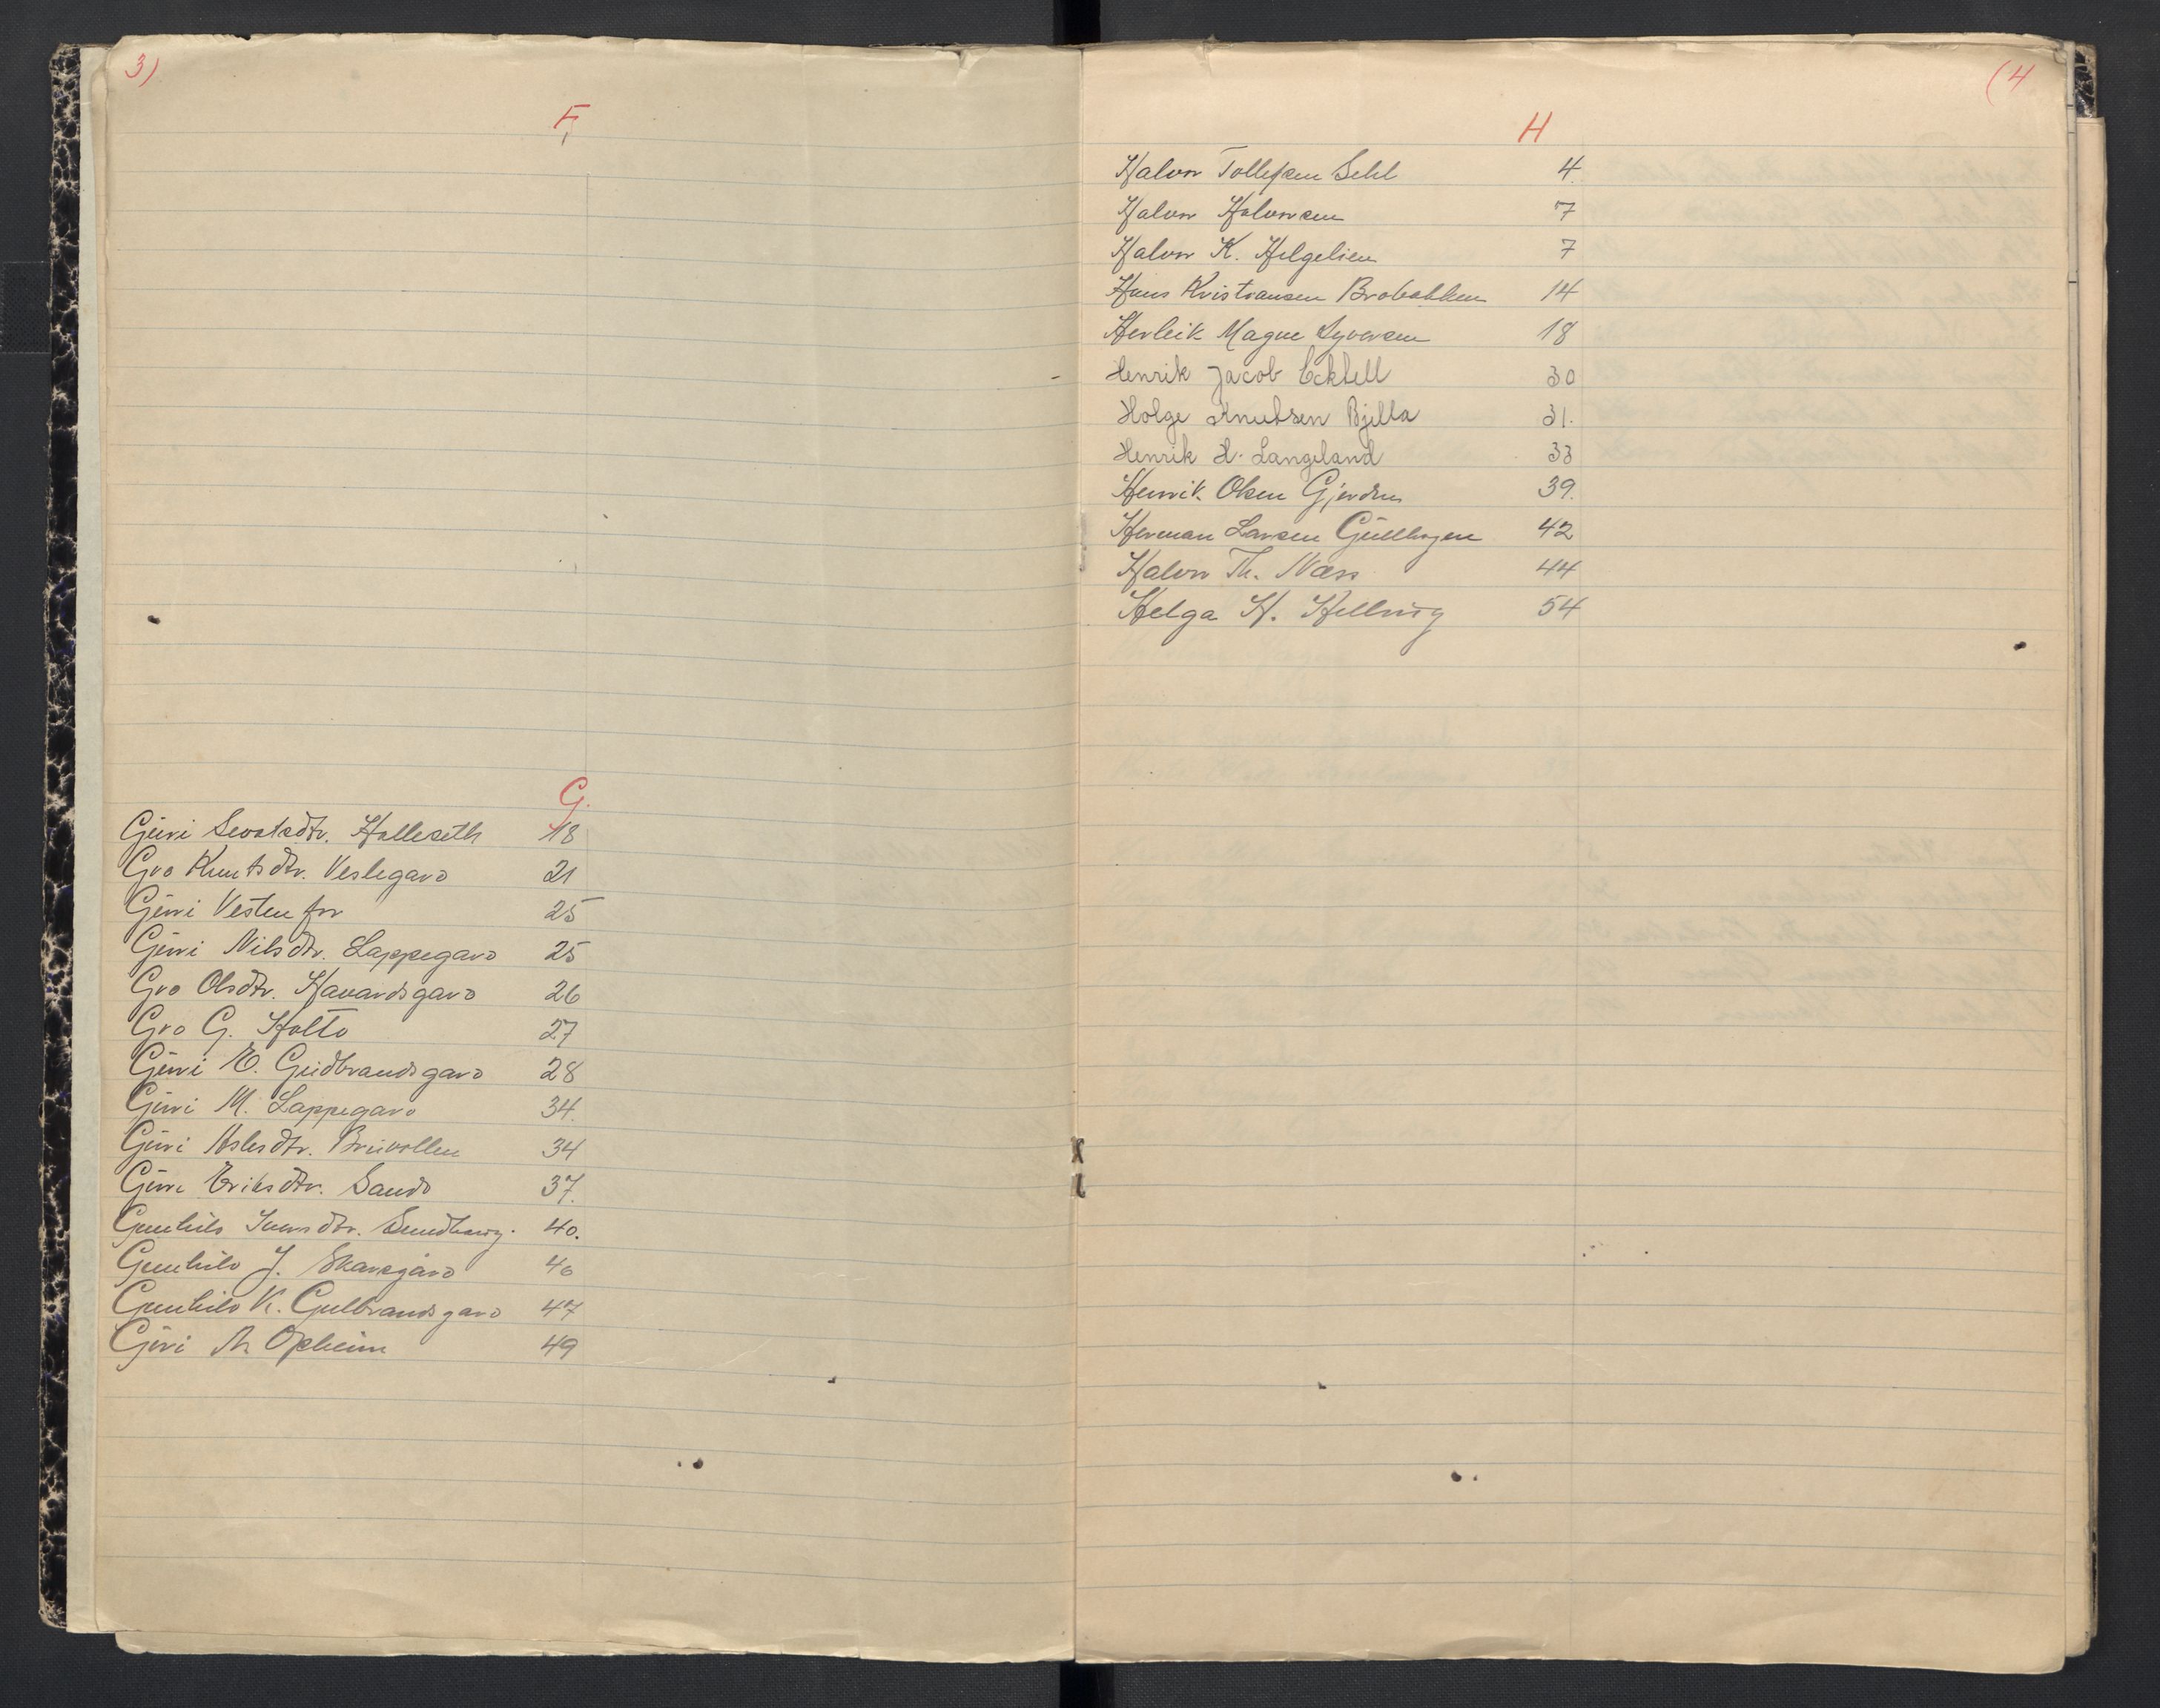 3)
F
G.
Guri Sevatsdtr. Halleseth 18
Gro Knutsdtr. Veslegard 21
Guri Vestenfor 25
Guri Nilsdtr. Lappegard 25
Gro Olsdtr. Havardsgard 26
Gro G. Holto 27
Guri E. Gudbrandsgard 28
Guri M. Lappegard 34.
Guri Aslesdtr. Bruvollen 34
Guri Eriksdtr. Sando 37.
Gunhild Iversdtr. Sundhaug. 40.
Gunhild J. Skarsgård 40
Gunhild K. Gulbrandsgard 47
Guri Th Opheim 49
(4
H
Halvor Tollefsen Sehl 4.
Halvor Halvorsen 7
Halvor K. Helgelien 7
Hans Kristiansen Brobakken 14
Herleik Magne Syversen 18
Henrik Jacob Eckhell 30
Holge Knutsen Bjella 31.
Henrik H. Langeland 33
Henrik Olsen Gjerdrum 39.
Herman Larsen Gullhagen 42
Halvor Th. Næss 44
Helga H. Helling 54